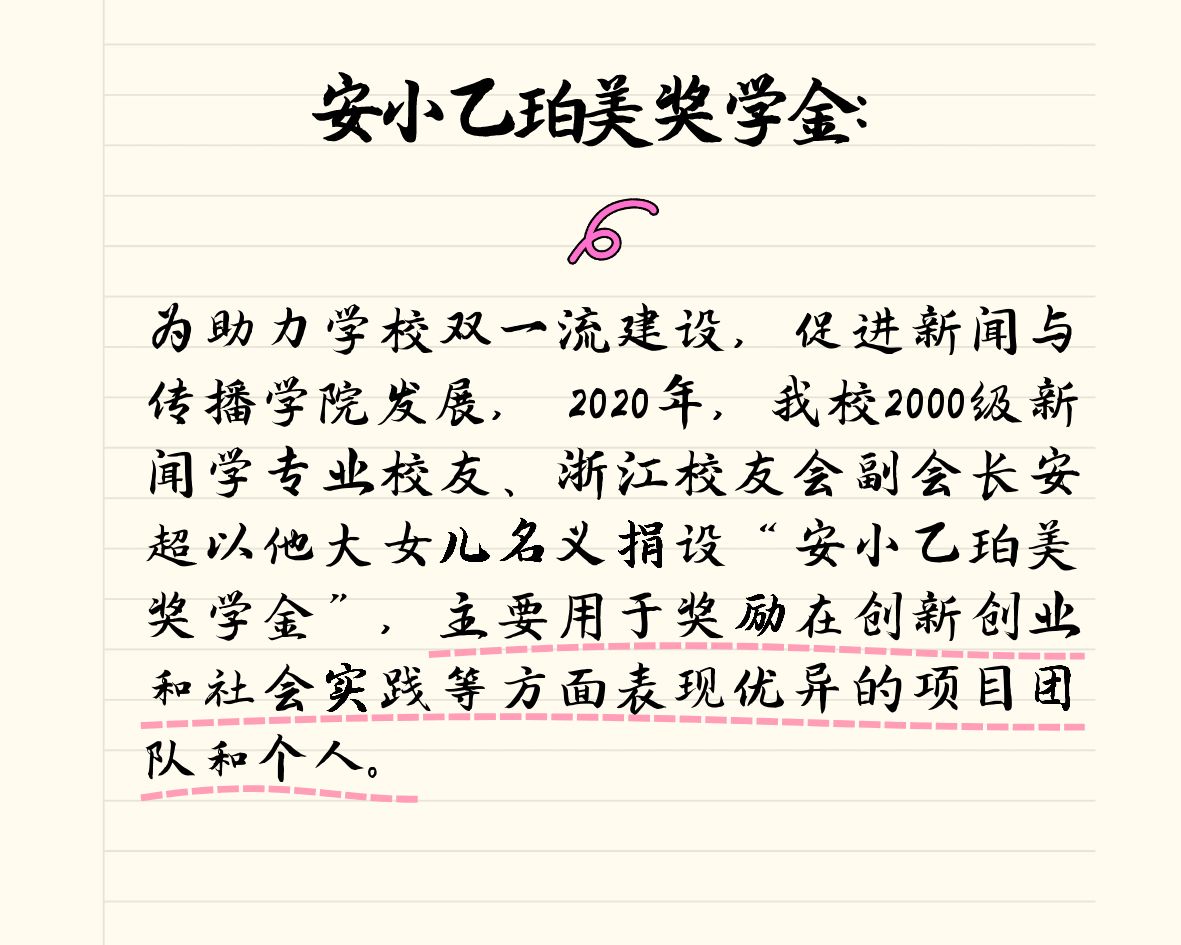 安小乙珀美奖学金:
为助力学校双一流建设，促进新闻与
传播学院发展， 2020年，我校2000级新
闻学专业校友、浙江校友会副会长安
超以他大女儿名义捐设“安小乙珀美
奖学金”，主要用于奖励在创新创业
和社会实践等方面表现优异的项目团
队和个人。